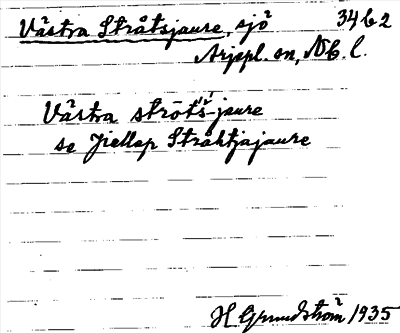 Västra Stråtsjaure, sjö 34 b 2
Arjepl. sn, Nb. l.
Västra strōt's̄-jaure
se Jiellap Stråktjajaure
H Grundström 1935